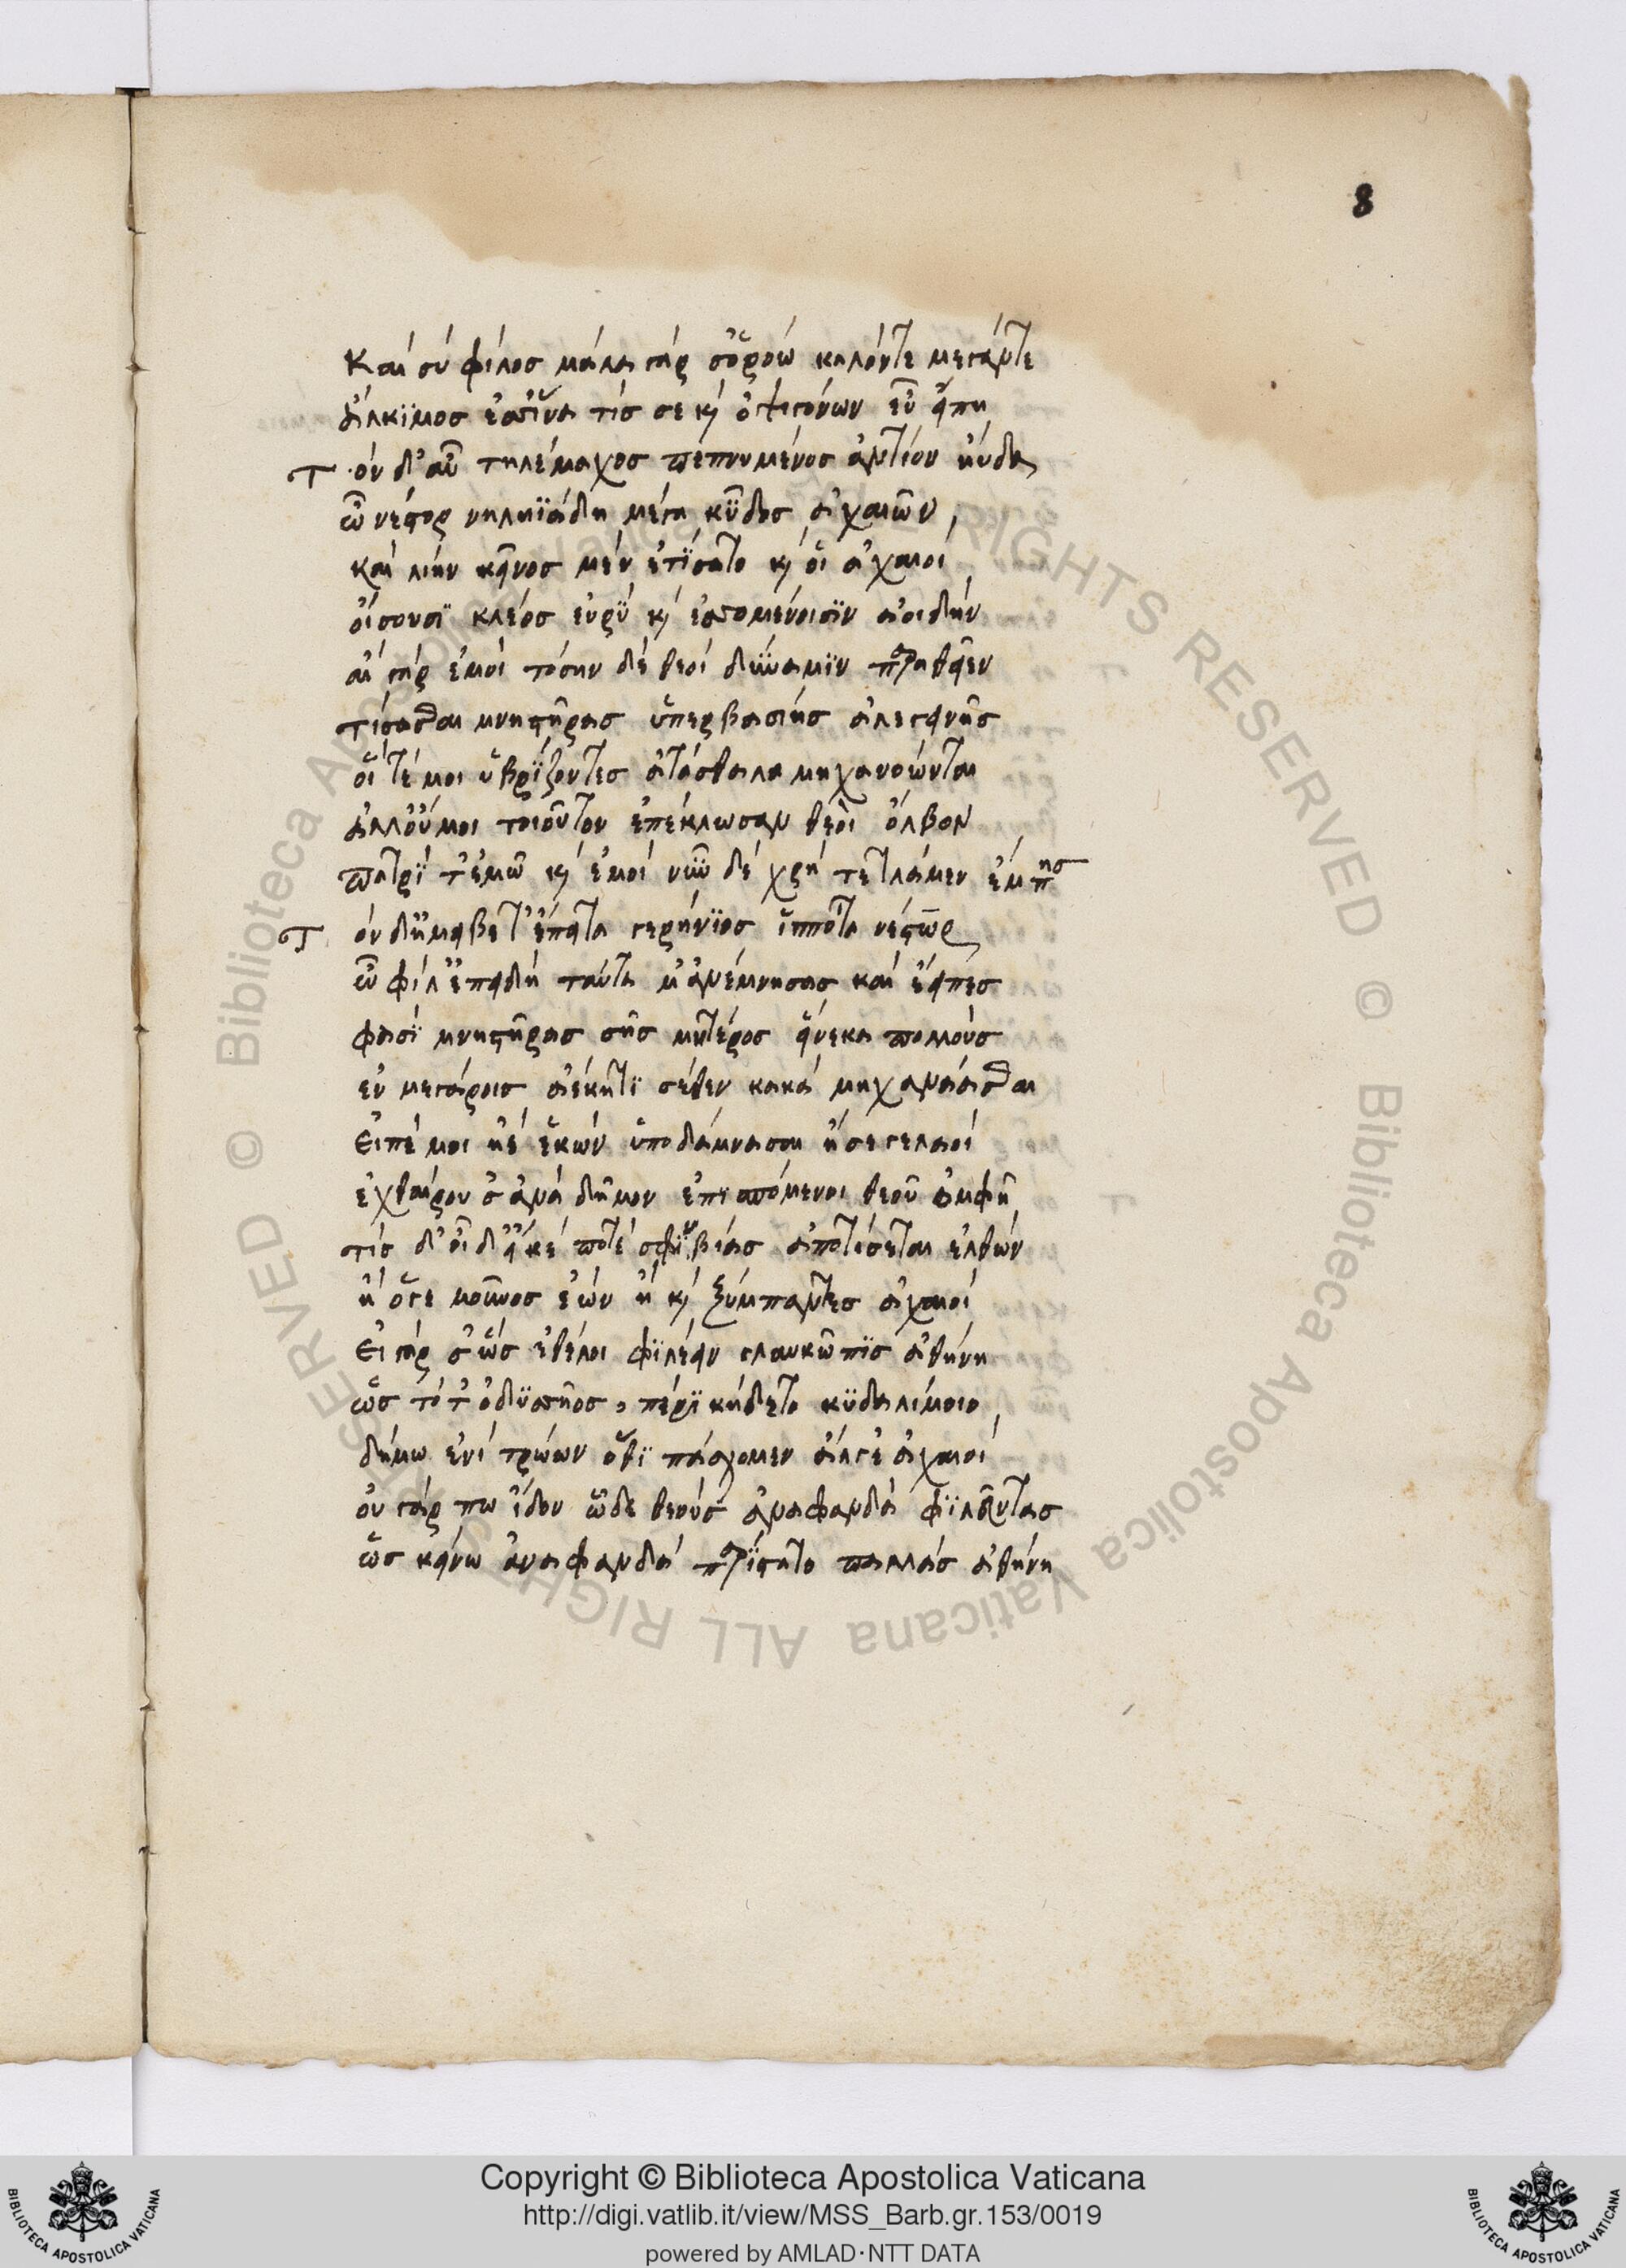 8
Καὶ σύ φίλος μάλα γάρ σ' ὁρόω καλόντε μέγαντε
ἄλκϊμος ἔσσ' ἵνα τίς σε κ' ὀψιγόνων εὖ εἴπη
Τὸν δ' αὖ τηλέμαχος πεπνυμένος ἀντίον ηὔδα
ὦ νέστορ νηληϊάδη μέγα κῦδος ἀχαιῶν,
καὶ λίην κεῖνος μέν ἐτίσατο κ' οἵ ἀχαιοί
οἴσουσϊ κλέος εὐρϋ κ' ἐσσομένοισϊν ἀοιδήν
αἰ γάρ ἐμοί τόσην δέ θεοί δύναμϊν περιθεῖεν
τίσασθαι μνηστῆρας ὑπερβασίης ἀλεγεινῆς
οἵ τέ μοι ὑβρΐζοντες ἀτάσθαλα μηχανόωνται
ἀλλ' οὔ μοι τοιοῦτον ἐπέκλωσαν θεοὶ ὄλβον
πατρΐ τ' ἐμῶ κ' ἐμοί νῦν δέ χρή τετλάμεν ἔμπης
Τὸν δ' ἠμείβετ' ἔπειτα γερήνϊος ἱππότα νέστωρ
ὦ φίλ' ἐπειδή ταῦτά μ' ἀνέμνησας καὶ ἔειπες
φασΐ μνηστῆρας σῆς μητέρος εἵνεκα πολλούς
ἐν μεγάροις ἀέκητϊ σέθεν κακά μηχανάασθαι
Εἰπέ μοι ἠέ ἑκών ὑποδάμνασαι ἤ σε γελαοί
ἐχθαίρουσ' ἀνά δῆμον ἐπισπόμενοι θεοῦ ὀμφῆ
τίς δ' οἶδ' εἴ κέ ποτέ σφϊ βίας ἀποτίσεται ἐλθών
ἤ ὅγε μοῦνος ἐών ἤ κ' ξύμπαντες ἀχαιοί
Εἰ γάρ σ' ὥς ἐθέλοι φϊλέειν γλαυκῶπϊς ἀθήνη
ὥς τότ' ὀδϋσσῆος, πέρϊ κήδετο κϋδαλίμοιο,
δήμω ἐνί τρώων ὅθϊ πάσχομεν ἄλγε' ἀχαιοί
οὐ γάρ πω ἴδον ὧδε θεούς ἀναφανδά φϊλεῦντας
ὥς κείνω ἀναφανδά παρΐστατο παλλάς ἀθήνη
Copyright © Biblioteca Apostolica Vaticana
http://digi.vatlib.it/view/MSS_Barb.gr.153/0019
powered by AMLAD·NTT DATA